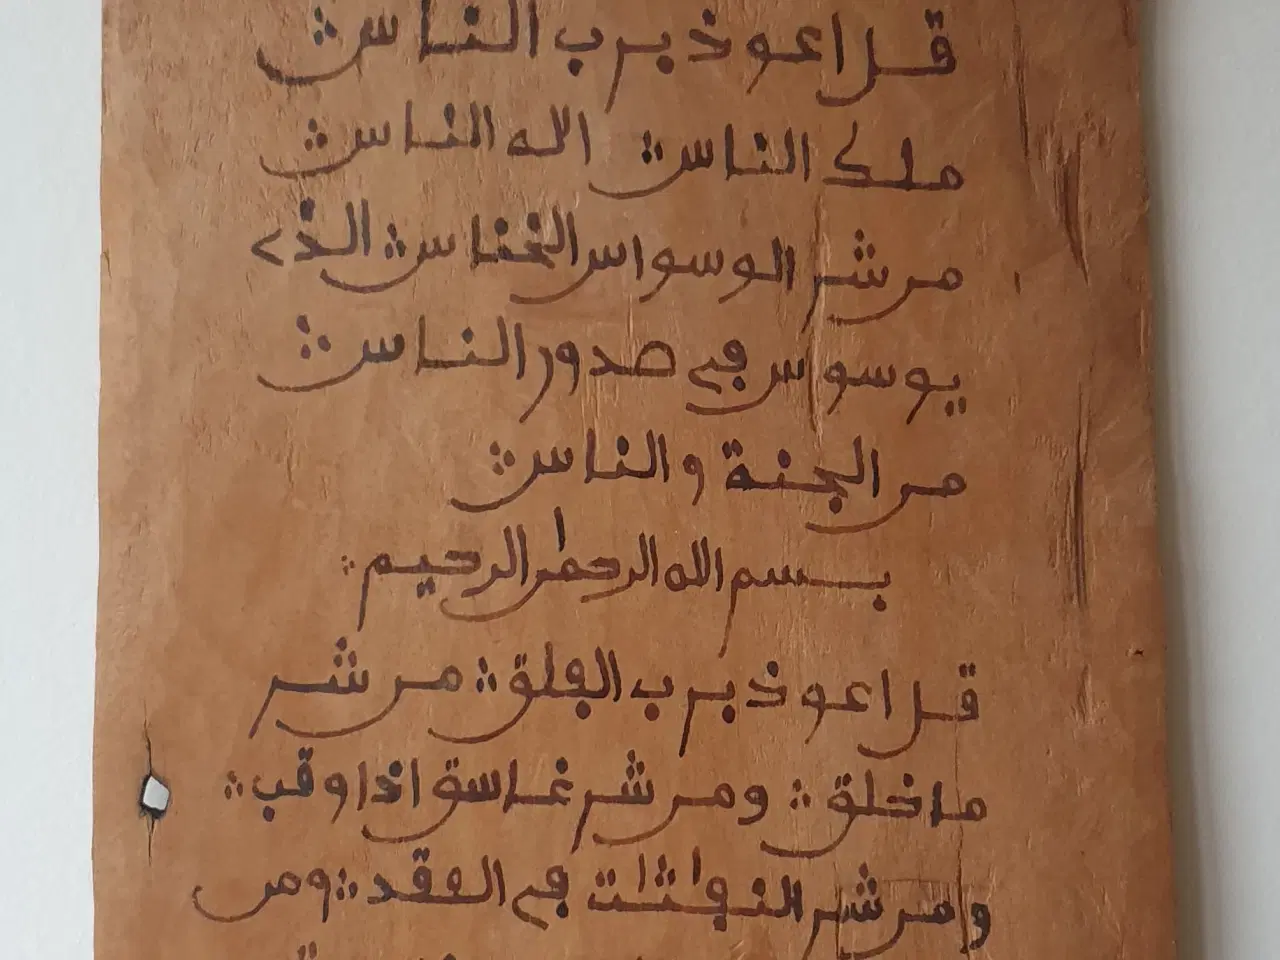 قل اعوذ برب الناس
ملك الناس اله الناس
من شر الوسواس الخناس الذي
يوسوس في صدور الناس
من الجنة والناس
بسم الله الرحمن الرحيم
قل اعوذ برب الفلق من شر
ما خلق ومن شر غاسق اذا وقب
ومن شر النفاثات في العقد ومن